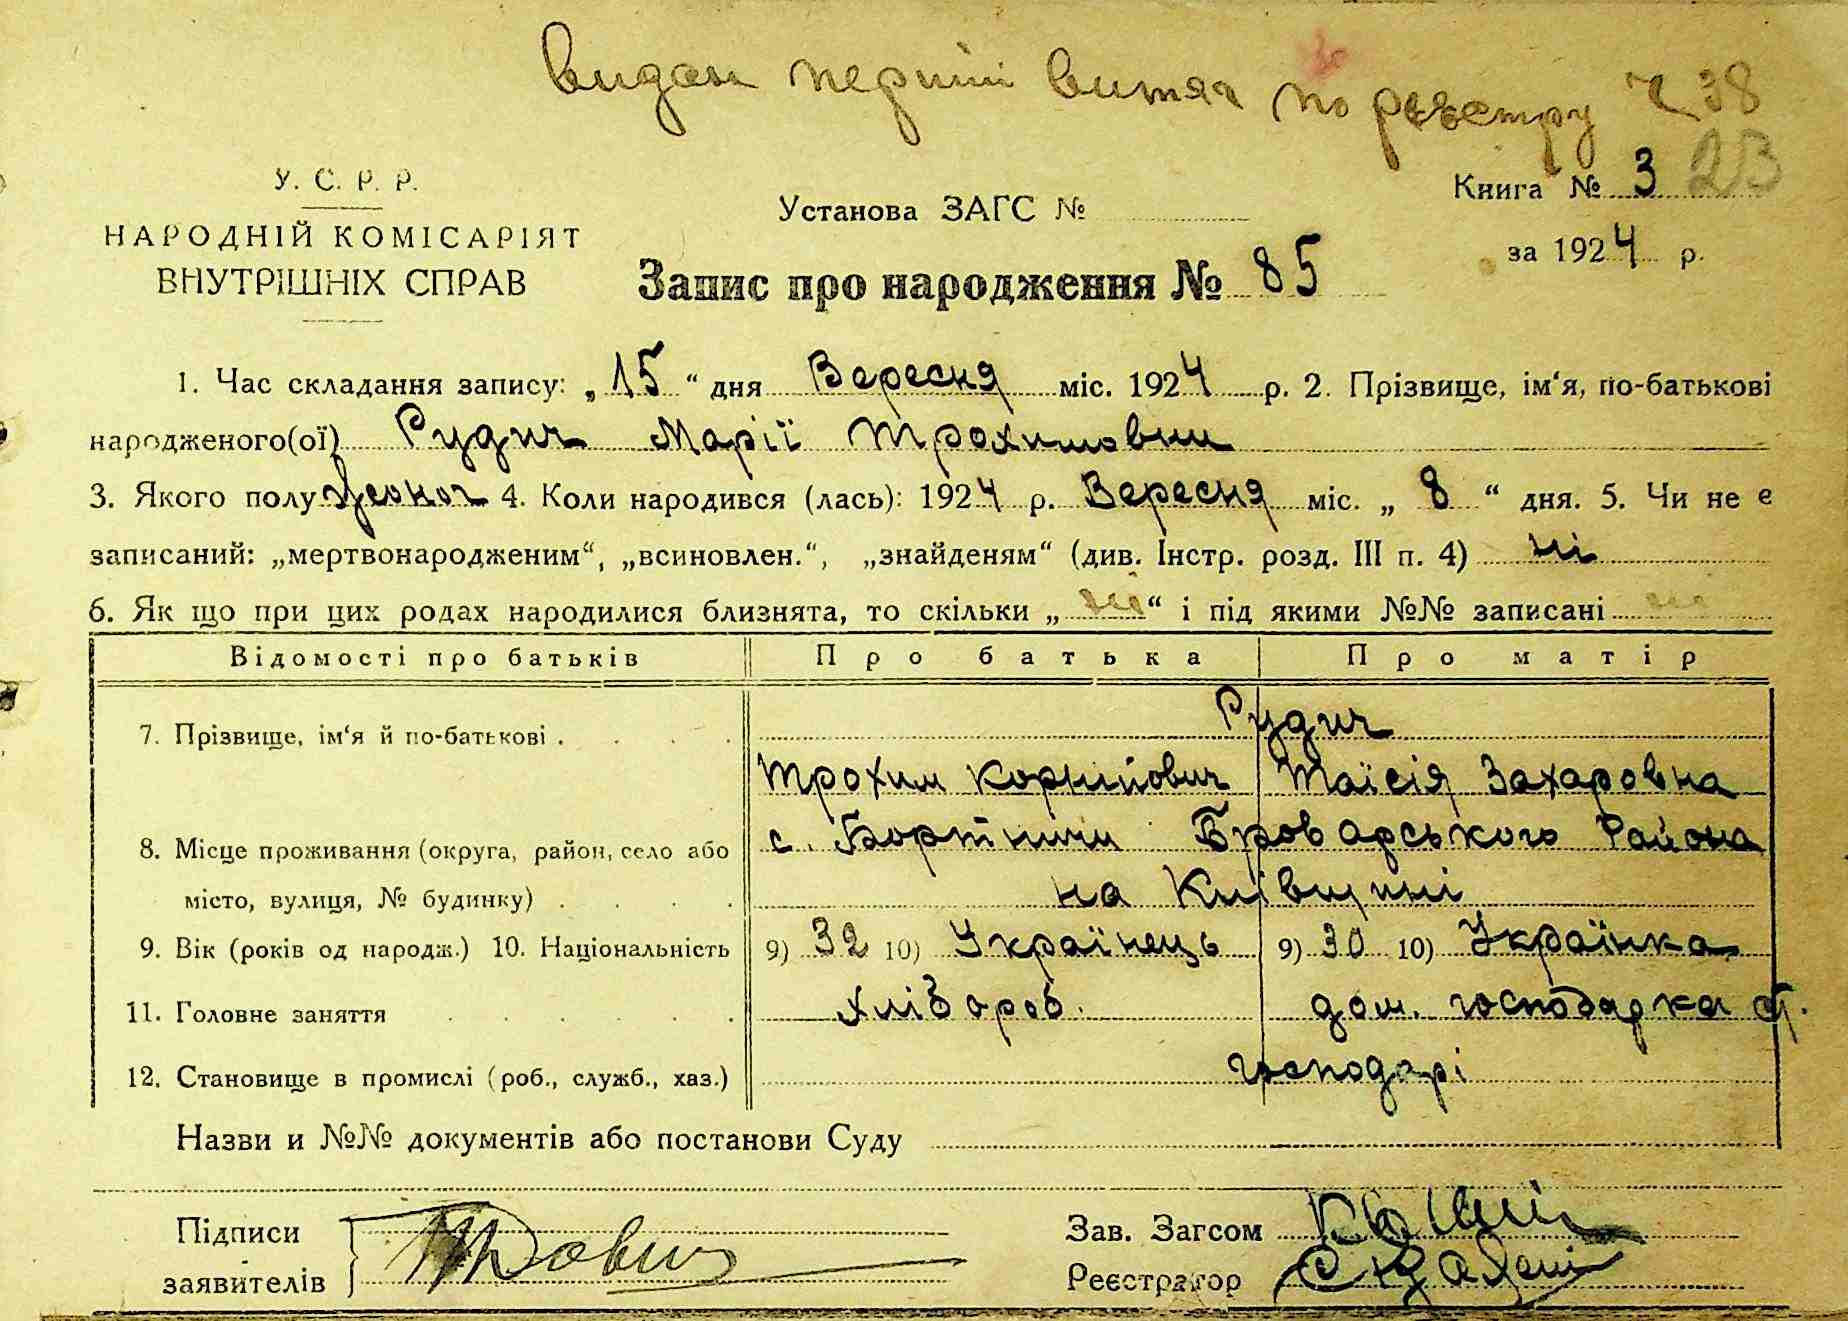 видан перший витяг по реєстру Ч 38
23
У. С. Р. Р.
НАРОДНІЙ КОМІСАРІЯТ
ВНУТРІШНІХ СПРАВ
Установа ЗАГС №
Книга № 3
за 1924 р.
Запис про народження № 85
1. Час складання запису: „15“ дня Вересня міс. 1924 р. 2. Прізвище, ім‘я, по-батькові
народженого(ої) Рудич Марії Трохимовни
3. Якого полу жіноч 4. Коли народився (лась): 1924 р. Вересня міс. „8“ дня. 5. Чи не є
записаний: „мертвонародженим“, „всиновлен.“, „знайденям“ (див. Інстр. розд. III п. 4) ні
6. Як що при цих родах народилися близнята, то скільки „ні“ і під якими №№ записані ні
Відомості про батьків Про батька Про матір
7. Прізвище, ім‘я й по-батькові . . . . Рудич
Трохим Корнійович Таїсія Захаровна
8. Місце проживання (округа, район, село або с. Бортничи Броварського Району
місто, вулиця, № будинку) . . . . на Київщині
9. Вік (років од народж.) 10. Національність 9) 32 10) Українець 9) 30 10) Українка
11. Головне заняття . . . . . . хлібороб. дом. господарка
12. Становище в промислі (роб., служб., хаз.) господарі
Назви и №№ документів або постанови Суду
Підписи
заявителів
Зав. Загсом
Реєстратор